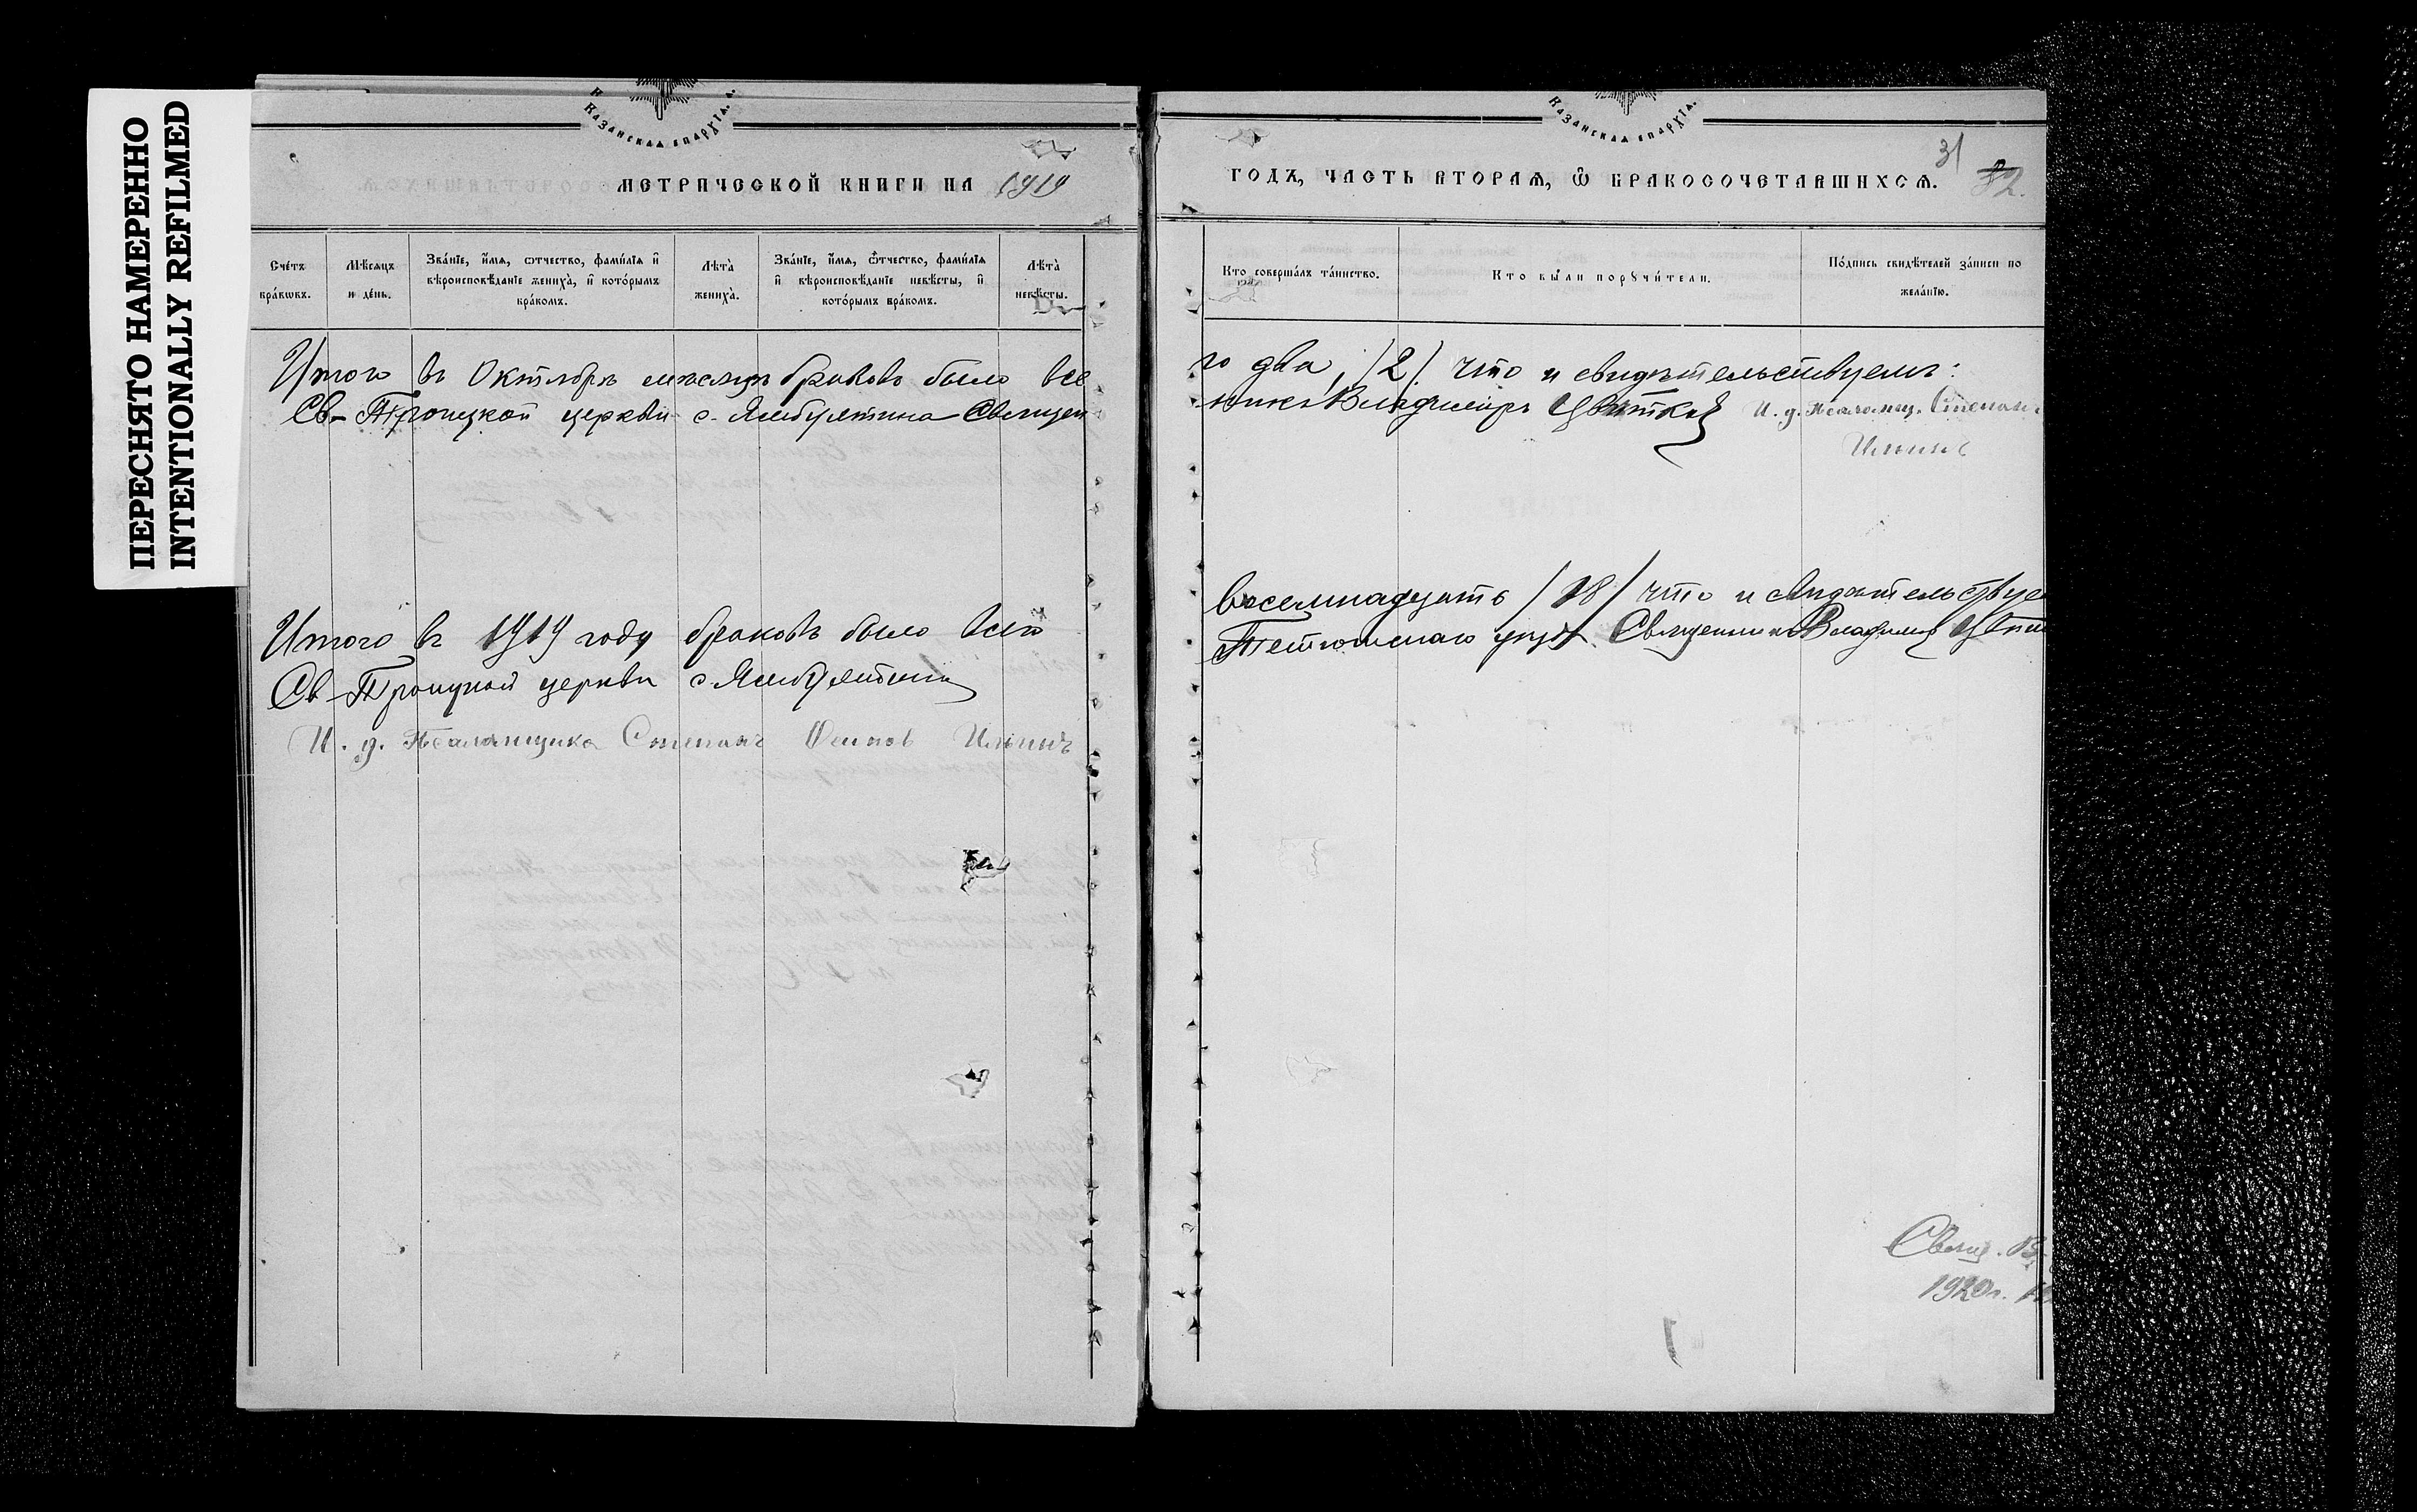 ПЕРЕСНЯТО НАМЕРЕННО
INTENTIONALLY REFILMED
КАЗАНСКАѦ ЕПАРХІѦ.
МЕТРИЧЕСКОЙ КНИГИ НА 1919
Сче́тъ бра́кѡвъ.
Мѣ́сѧцъ и де́нь.
Зва́нїе, и҆́мѧ, ѻ҆́тчество, фами́лїѧ и҆ вѣроисповѣ́данїе жениха̀, и҆ кото́рымъ бра́комъ.
Лѣ́та жениха̀.
Зва́нїе, и҆́мѧ, ѻ҆́тчество, фами́лїѧ и҆ вѣроисповѣ́данїе невѣ́сты, и҆ кото́рымъ бра́комъ.
Лѣ́та невѣ́сты.
Итого въ Октябрѣ мѣсяцѣ браковъ было все
Св-Троицкой церкви с. Ямбухтина Священ
Итого въ 1919 году браковъ было всего
Св-Троицкой церкви с. Ямбухтина
И. д. Псаломщика Степанъ Осиповъ Ильинъ
КАЗАНСКАѦ ЕПАРХІѦ.
31
ГОДЪ, ЧАСТЬ ВТОРАѦ, Ѽ БРАКОСОЧЕТАВШИХСѦ. 32.
Кто̀ соверша́лъ та́инство.
Кто̀ бы́ли порꙋчи́тели.
По́дпись свидѣ́телей за́писи по жела́нїю.
го два, /2/ что и свидѣтельствуемъ:
никъ Владимиръ Цвѣтковъ И. д. Псаломщ. Степанъ
Ильинъ
восемнадцать /18/ что и свидѣтельствуе
Тетюшскаго уѣзда Священникъ Владимиръ Цвѣт
Свящ. В
1920 г.